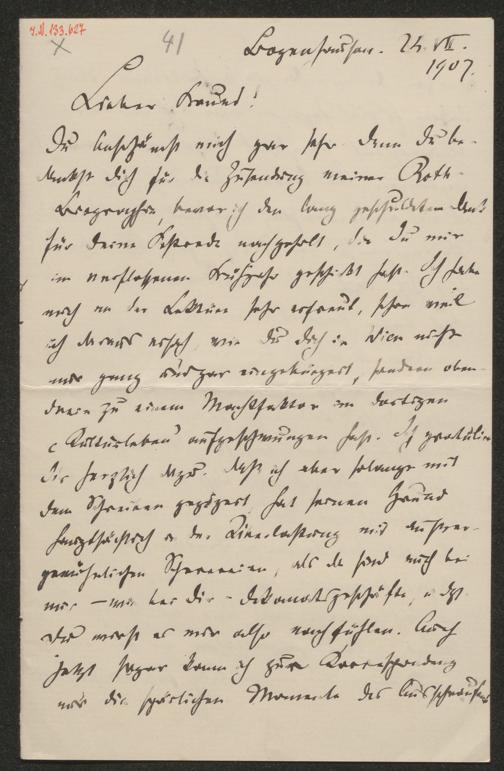 I.N. 133.627
41
Bogenhausen. 24. VII.
1907.
Lieber Freund!
Du beschämst mich gar sehr. Denn Du be-
dankst Dich für die Zusendung meiner Roth-
Biographie, bevor ich den lang geschuldeten Dank
für Deine Festrede nachgeholt, die Du mir
im verflossenen Frühjahr geschickt hast. Ich habe
mich an der Lektüre sehr erfreut, schon weil
ich daraus ersah, wie Du Dich in Wien nicht
nur ganz und gar eingebürgert, sondern oben-
drein zu einem Machtfaktor im dortigen
Kulturleben aufgeschwungen hast. Ich gratulire
Dir herzlich dazu. Daß ich aber solange mit
dem Schreiben gezögert, hat seinen Grund
hauptsächlich in der Überlastung mit außer-
gewöhnlichen Schreibereien, als da sind auch bei
mir – wie bei Dir – Dekanatsgeschäfte, u. dgl.
Du wirst es mir also nachfühlen. Auch
jetzt sogar kann ich zur Korrespondenz
nur die spärlichen Momente des Ausschnaufens